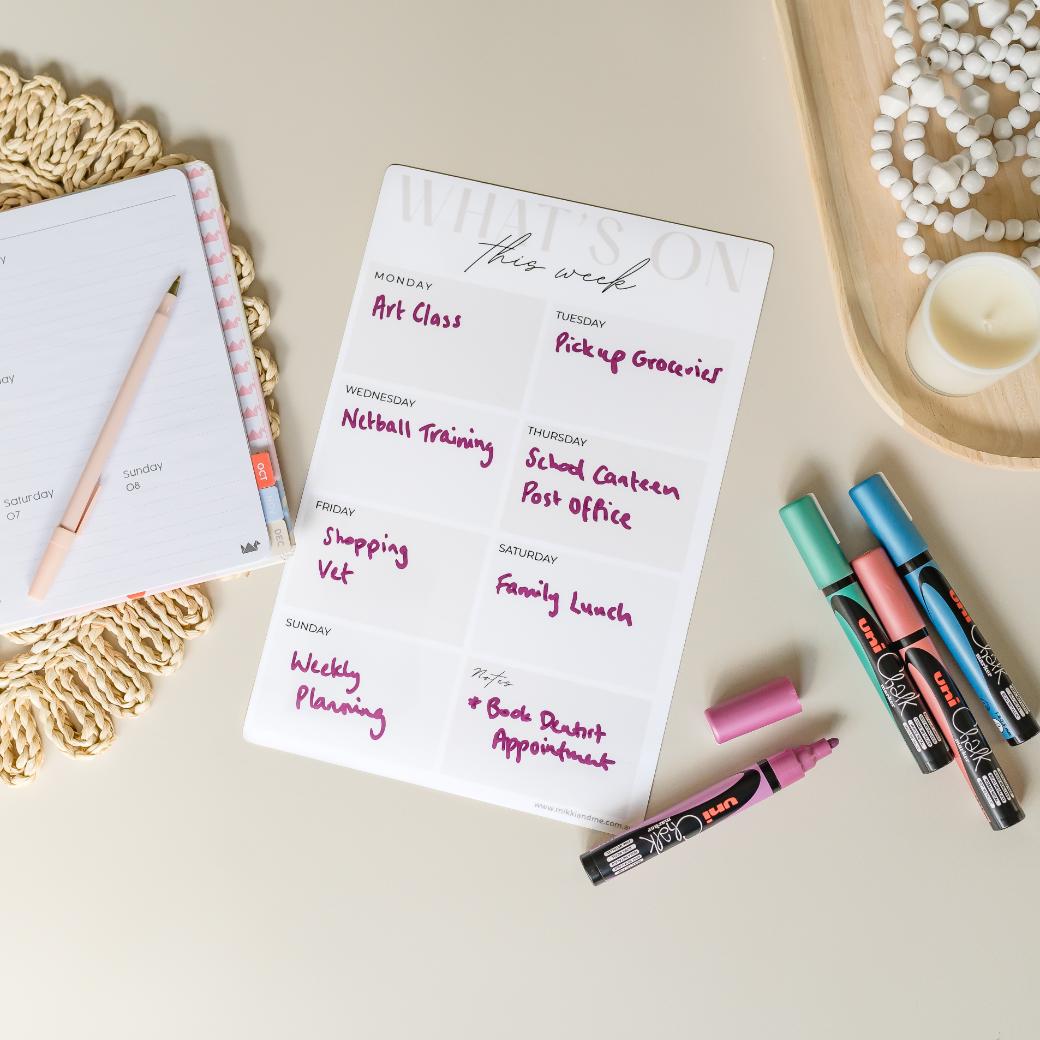 WHAT'S ON
this week
MONDAY
Art Class
TUESDAY
Pick up Groceries
WEDNESDAY
Netball Training
THURSDAY
School Canteen
Post Office
FRIDAY
Shopping
Vet
SATURDAY
Family Lunch
SUNDAY
Weekly
Planning
Notes
* Book Dentist
Appointment
www.mikkiandme.com.a
Saturday
07
Sunday
08
OCT
DEC
uni
Chalk
marker
uni
Chalk
marker
uni
Chalk
marker
uni
Chalk
marker